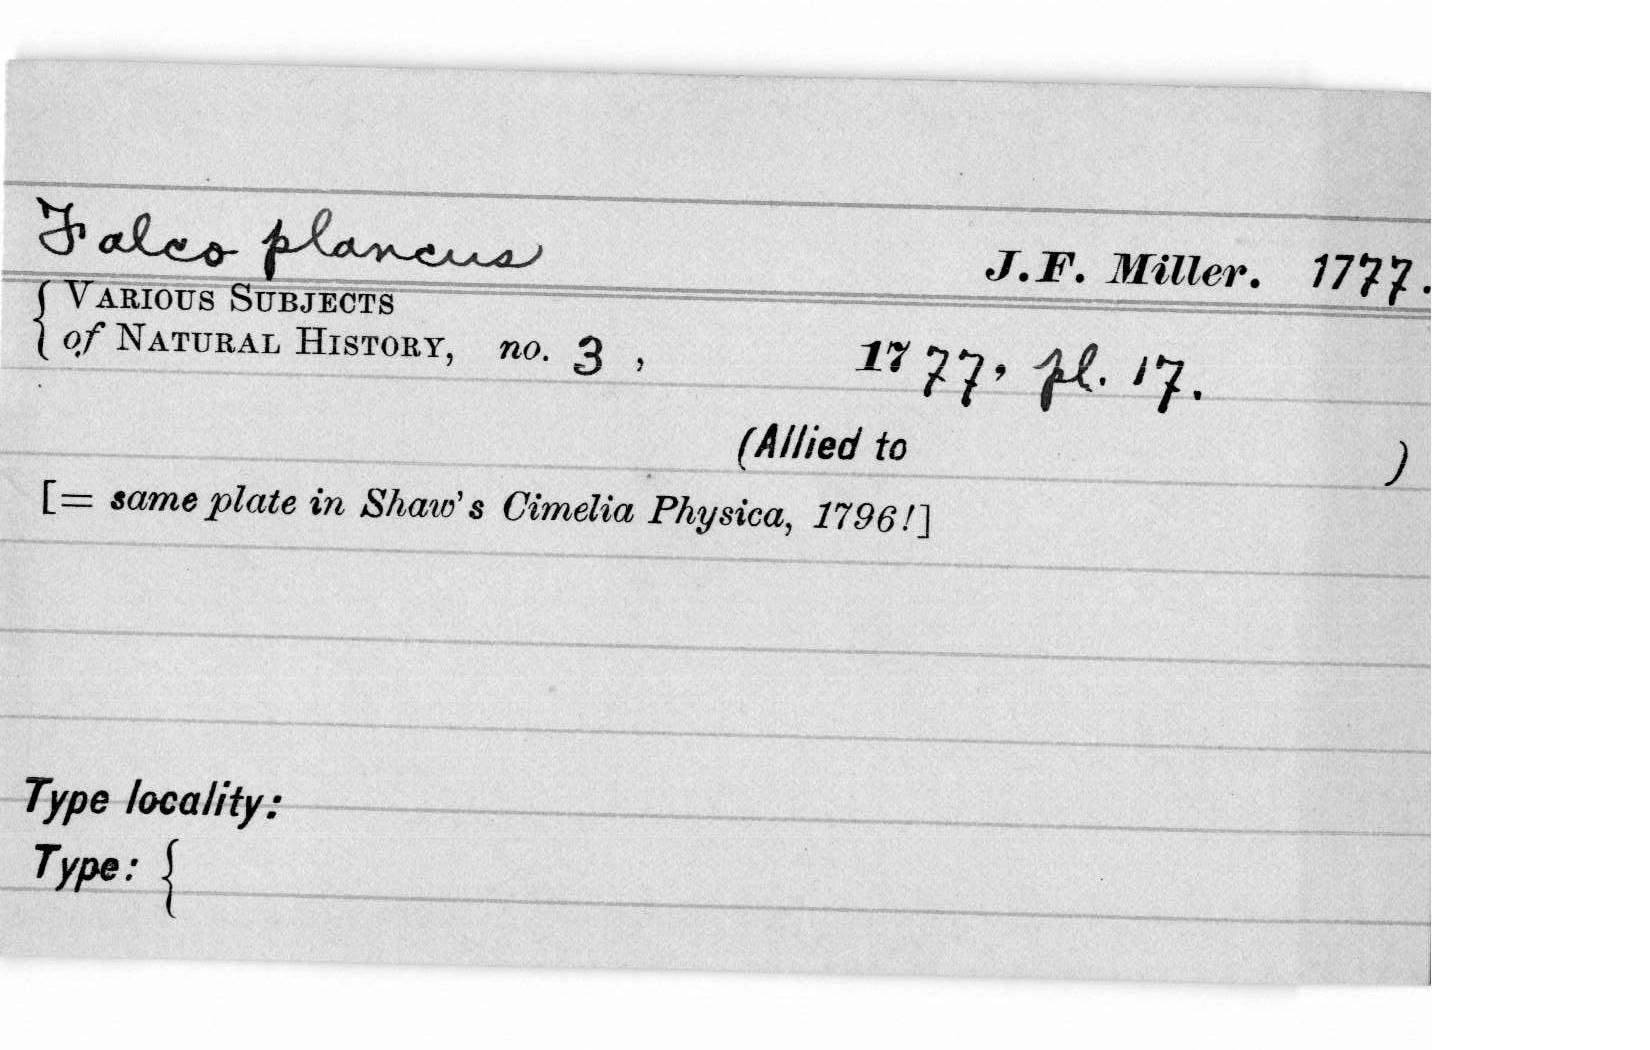 Falco plancus J.F. Miller. 1777.
{ VARIOUS SUBJECTS
of NATURAL HISTORY, no. 3 , 1777, pl. 17.
(Allied to )
[= same plate in Shaw's Cimelia Physica, 1796!]
Type locality:
Type: {